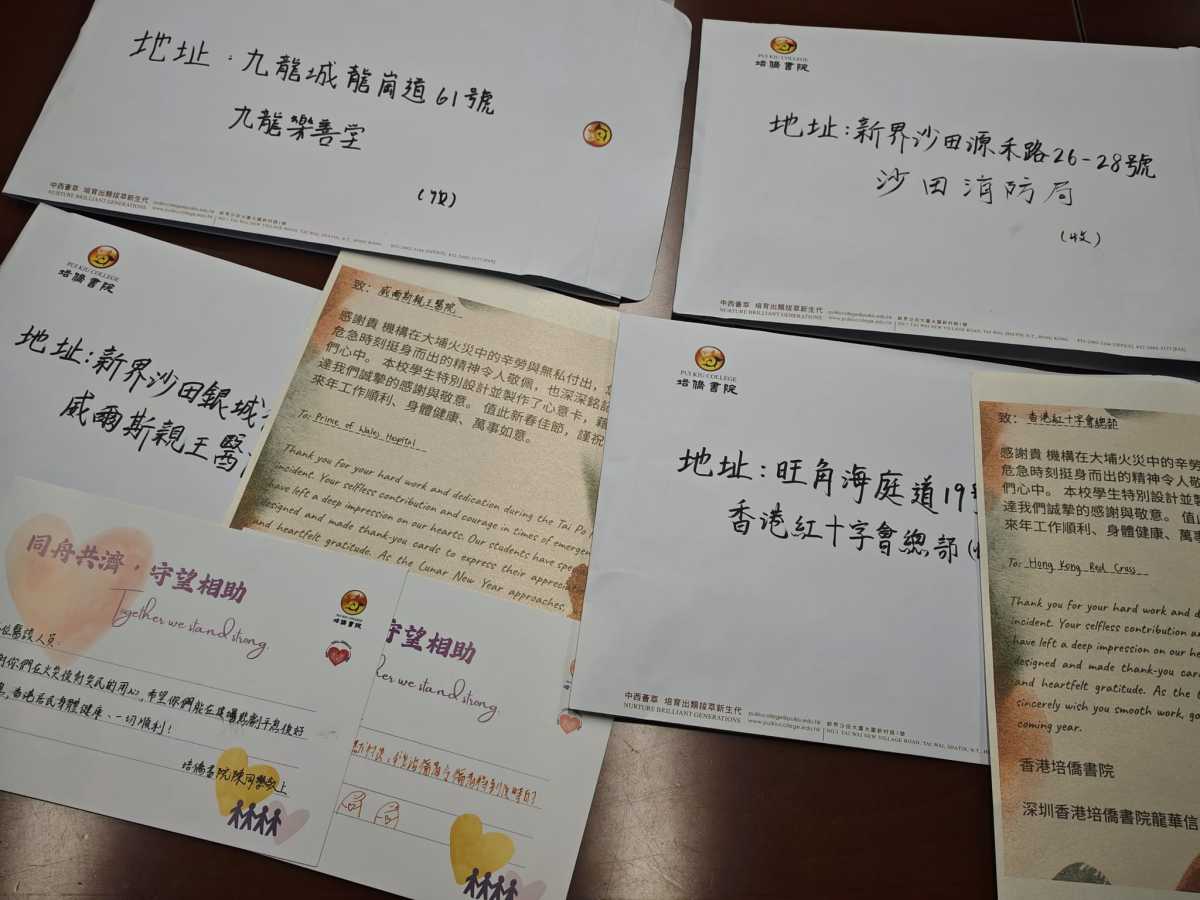 地址：九龍城龍崗道61號
九龍樂善堂
（收）
中西薈萃 培育出類拔萃新生代
NURTURE BRILLIANT GENERATIONS
PUI KIU COLLEGE
培僑書院
地址：新界沙田源禾路26-28號
沙田消防局
（收）
中西薈萃 培育出類拔萃新生代
NURTURE BRILLIANT GENERATIONS
PUI KIU COLLEGE
培僑書院
地址：新界沙田銀城
威爾斯親王醫
致：威爾斯親王醫院
感謝貴 機構在大埔火災中的辛勞與無私付出，
危急時刻挺身而出的精神令人敬佩，也深深銘
們心中。 本校學生特別設計並製作了心意卡，藉
達我們誠摯的感謝與敬意。 值此新春佳節，謹祝
來年工作順利、身體健康、萬事如意。
To: Prince of Wales Hospital
Thank you for your hard work and dedication during the Tai Po
incident. Your selfless contribution and courage in times of emergen
have left a deep impression on our hearts. Our students have spe
designed and made thank-you cards to express their apprecia
and heartfelt gratitude. As the Lunar New Year approaches,
PUI KIU COLLEGE
培僑書院
地址：旺角海庭道19號
香港紅十字會總部
中西薈萃 培育出類拔萃新生代
NURTURE BRILLIANT GENERATIONS
致：香港紅十字會總部
感謝貴 機構在大埔火災中的辛勞
危急時刻挺身而出的精神令人敬
們心中。 本校學生特別設計並製
達我們誠摯的感謝與敬意。 值此
來年工作順利、身體健康、萬事
To: Hong Kong Red Cross
Thank you for your hard work and d
incident. Your selfless contribution a
have left a deep impression on our he
designed and made thank-you car
and heartfelt gratitude. As the
sincerely wich you smooth work, go
coming year.
香港培僑書院
深圳香港培僑書院龍華信
同舟共濟，守望相助
Together we stand strong.
培僑書院
位醫護人員：
你們在火災後對災民的用心，希望你們能在這場悲劇
香港居民身體健康、一切順利！
培僑書院陳同學敬上
守望相助
we stand strong.